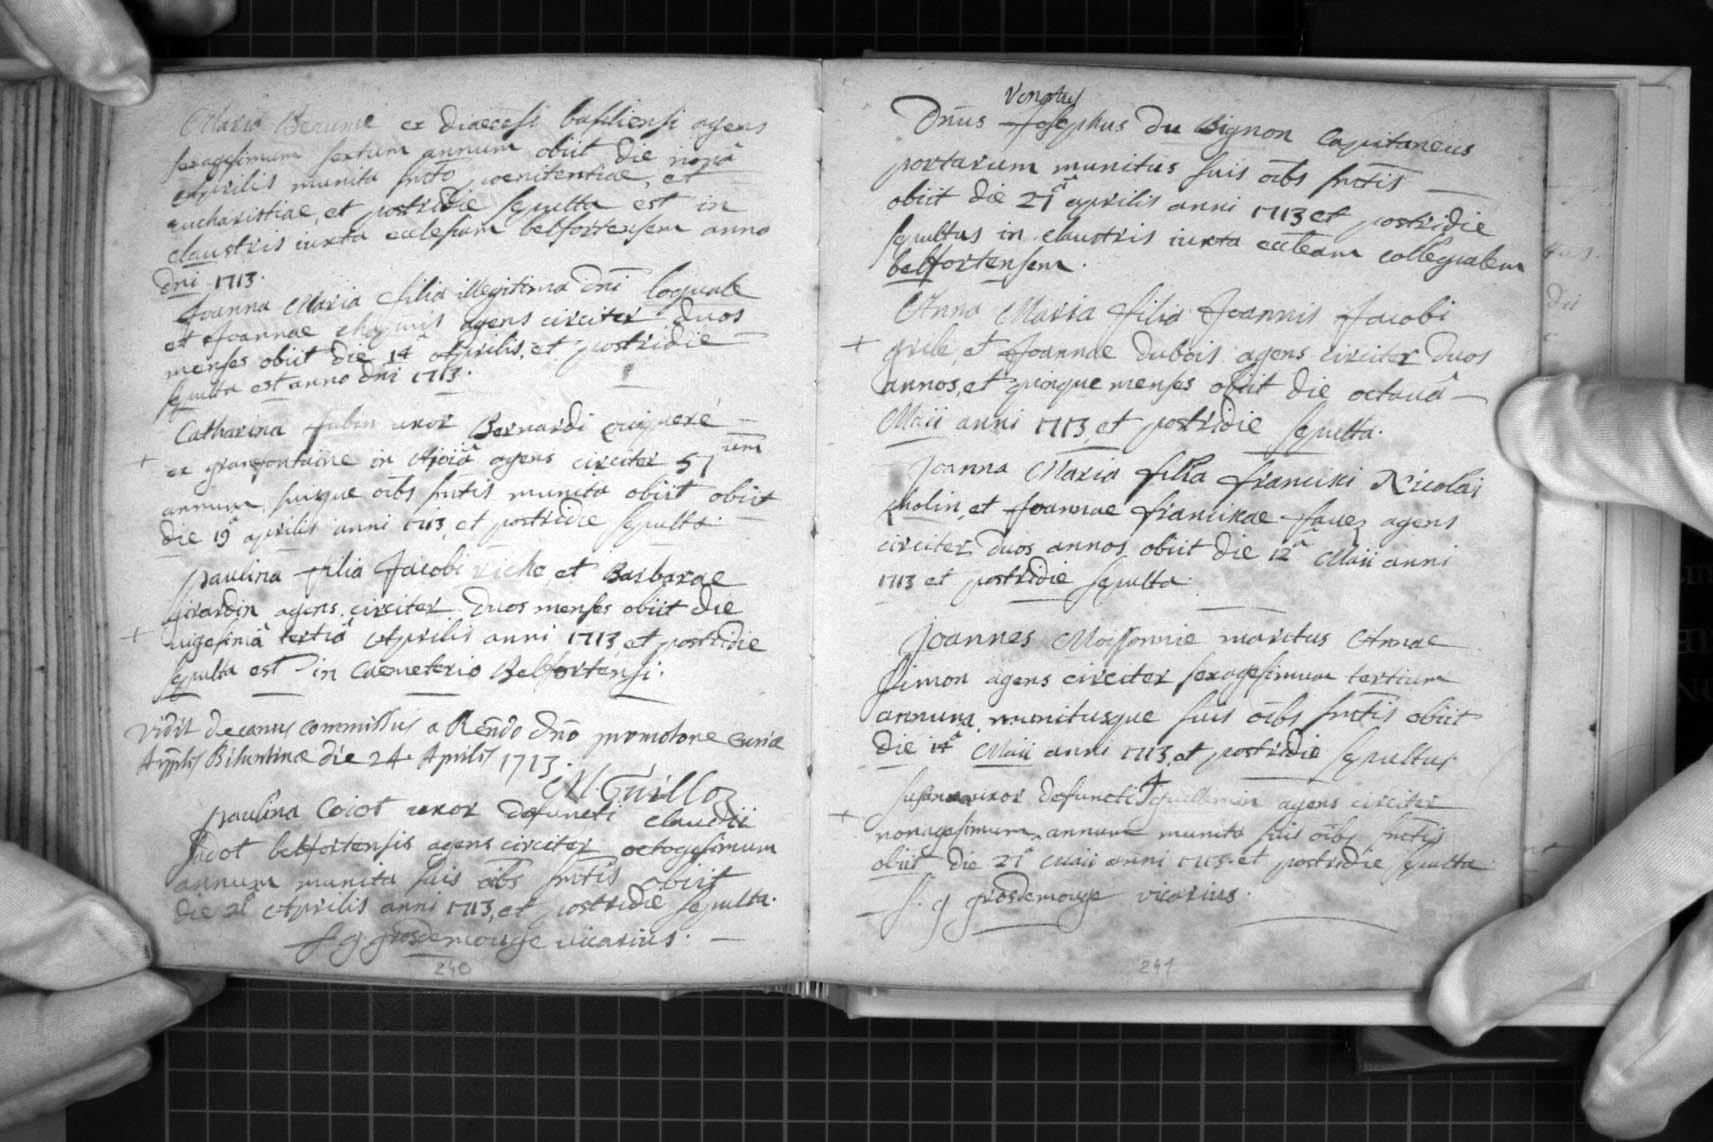 Maria Berume ex diaecesi basiliensi agens
sexagesimum sextum annum obiit die nonâ
aprilis munita sncto poenitentiae, et
eucharistiae, et postridie sepulta est in
claustris iuxta ecclesiam belfortensem anno
dni 1713.
Joanna Maria filia illegitima dni
et Joannae agens circiter duos
menses obiit die 14a Aprilis, et postridie
sepulta est anno dni 1713.
Catharina uxor Bernardi
+ ex granfontaine in Ajoiâ agens circiter 57um
annum, suisque oibs snctis munita obiit obiit
die 19a aprilis anni 1713, et postridie sepulta.
paulina filia Jacobi riche et Barbarae
girardin agens circiter duos menses obiit die
+ vigesimâ tertiâ Aprilis anni 1713, et postridie
sepulta est in Caemeterio Belfortensi.
Vidit decanus commissus a Rendo dno promotore curiae
Bisuntinae die 24 Aprilis 1713.
M. Guilloz
paulina Coiot uxor defuncti claudii
belfortensis agens circiter octogesimum
annum munita suis oibs snctis obiit
die 21a Aprilis anni 1713, et postridie sepulta.
f. g. grosdemouge vicarius.
240
Venatus
Dnus Josephus Du Bignon Capitaneus
portarum munitus suis oibs snctis
obiit die 21a aprilis anni 1713 et postridie
sepultus in claustris iuxta eccleam collegialem
belfortensem.
Anna Maria filia Joannis Jacobi
+ grile, et Joannae dubois agens circiter duos
annos, et quinque menses obiit die octavâ
Maii anni 1713, et postridie sepulta.
Joanna Maria filia francisci Nicolai
cholin, et Joannae franciscae favez agens
circiter duos annos obiit die 12a Maii anni
1713 et postridie sepulta.
Joannes Moissonnie maritus Annae
Simon agens circiter sexagesimum tertium
annum, munitusque suis oibs snctis obiit
die 14a Maii anni 1713, et postridie sepultus.
uxor defuncti guillemin agens circiter
+ nonagesimum annum munita suis oibs snctis
obiit die 21a Maii anni 1713. et postridie sepulta.
f. g grosdemouge vicarius.
241